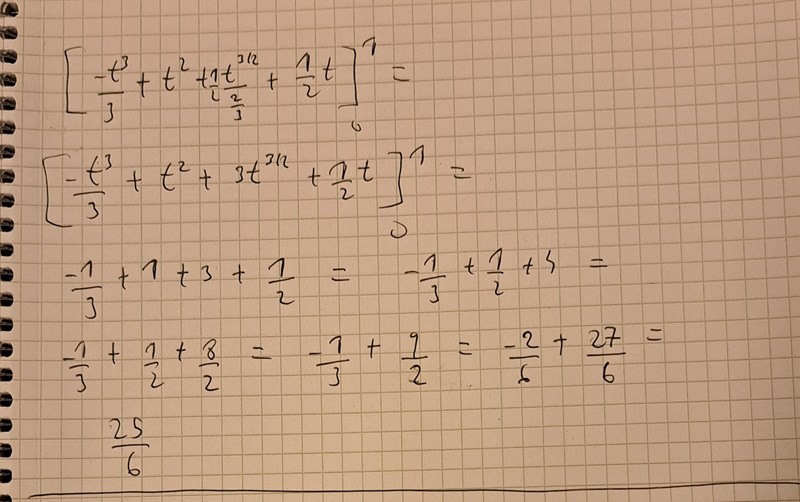 [-t³/3 + t² + 1/2 t^(3/2)/(2/3) + 1/2 t]₀¹ =
[-t³/3 + t² + 3t^(3/2) + 1/2 t]₀¹ =
-1/3 + 1 + 3 + 1/2 = -1/3 + 1/2 + 4 =
-1/3 + 1/2 + 8/2 = -1/3 + 9/2 = -2/6 + 27/6 =
25/6